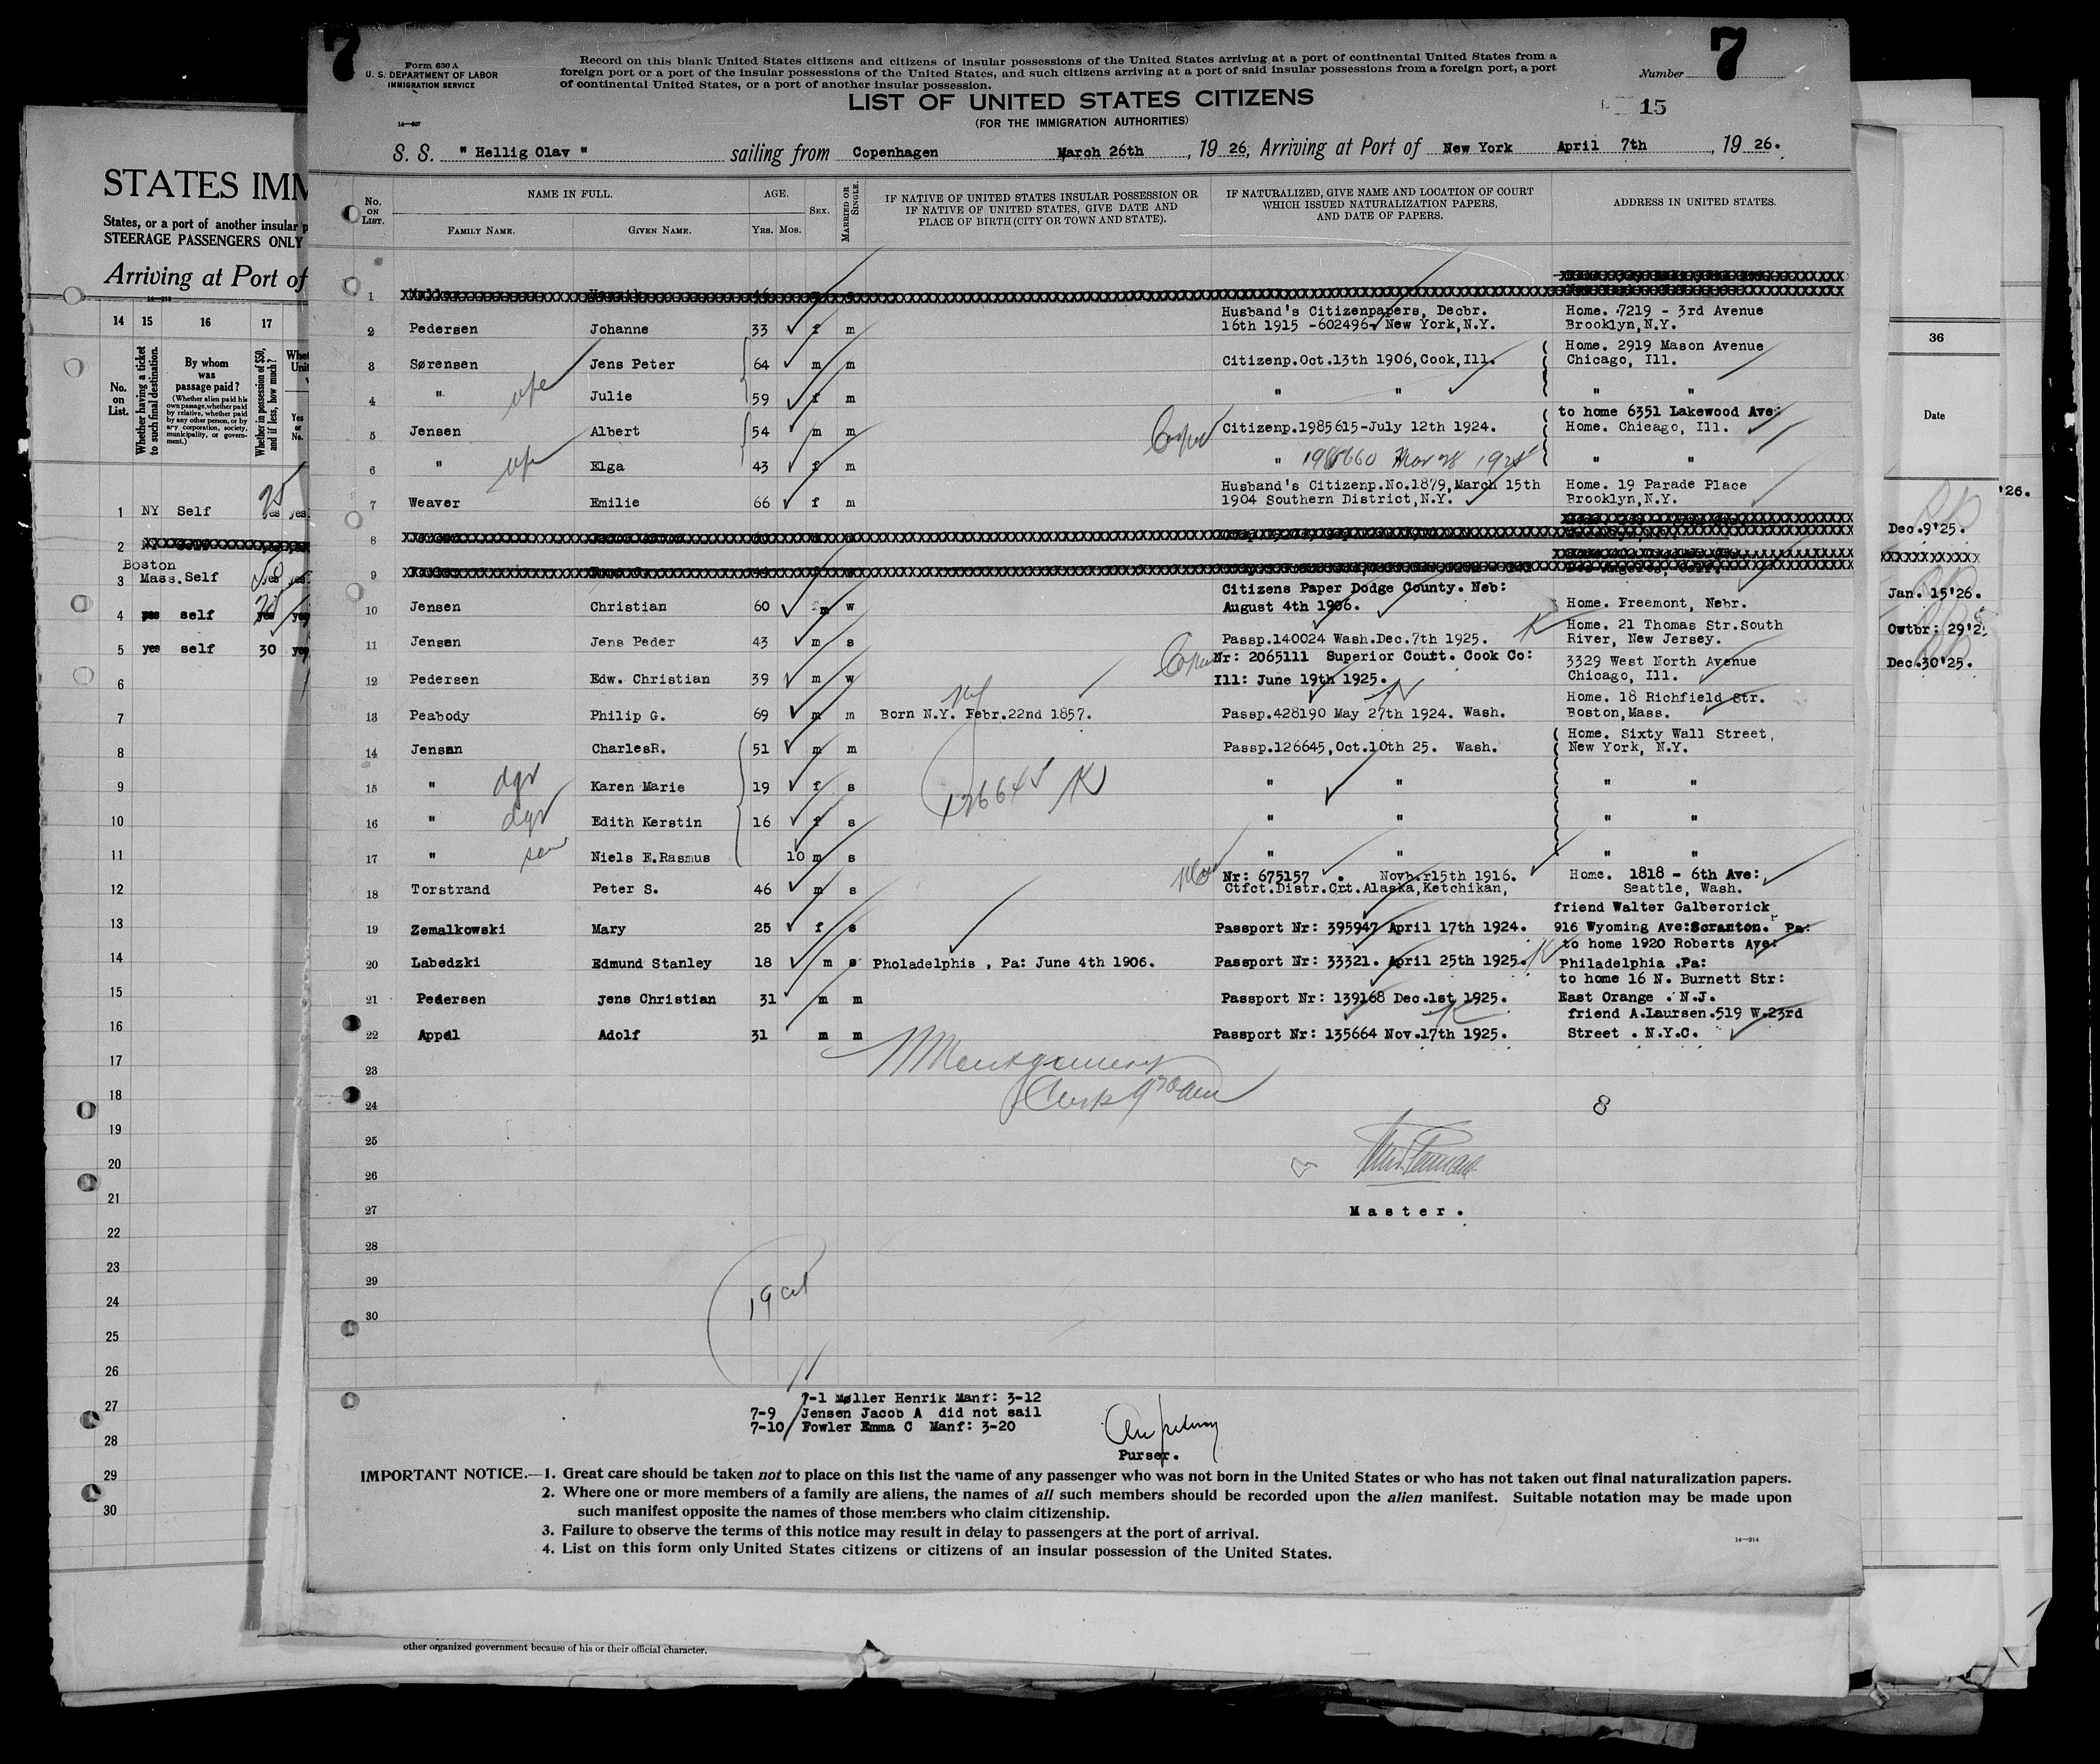 7
7
Form 630 A
U. S. DEPARTMENT OF LABOR
IMMIGRATION SERVICE
Record on this blank United States citizens and citizens of insular possessions of the United States arriving at a port of continental United States from a
foreign port or a port of the insular possessions of the United States, and such citizens arriving at a port of said insular possessions from a foreign port, a port
of continental United States, or a port of another insular possession.
Number
LIST OF UNITED STATES CITIZENS
(FOR THE IMMIGRATION AUTHORITIES)
15
14—607
S. S. " Hellig Olav " sailing from Copenhagen March 26th, 19 26, Arriving at Port of New York April 7th, 19 26.
No. ON LIST.
NAME IN FULL.
FAMILY NAME. GIVEN NAME.
AGE.
YRS. MOS.
SEX.
MARRIED OR SINGLE.
IF NATIVE OF UNITED STATES INSULAR POSSESSION OR
IF NATIVE OF UNITED STATES, GIVE DATE AND
PLACE OF BIRTH (CITY OR TOWN AND STATE).
IF NATURALIZED, GIVE NAME AND LOCATION OF COURT
WHICH ISSUED NATURALIZATION PAPERS,
AND DATE OF PAPERS.
ADDRESS IN UNITED STATES.
1
Husband's Citizenpapers, Decbr. Home. 7219 - 3rd Avenue
2 Pedersen Johanne 33 f m 16th 1915 -602496- New York,N.Y. Brooklyn,N.Y.
Home. 2919 Mason Avenue
3 Sørensen Jens Peter 64 m m Citizenp.Oct.13th 1906,Cook,Ill. Chicago, Ill.
4 " Julie 59 f m " " " "
to home 6351 Lakewood Ave:
5 Jensen Albert 54 m m Citizenp.1985615-July 12th 1924. Home. Chicago, Ill.
6 " Elga 43 f m " " "
Husband's Citizenp.No.1879,March 15th Home. 19 Parade Place
7 Weaver Emilie 66 f m 1904 Southern District,N.Y. Brooklyn,N.Y.
8
9
Citizens Paper Dodge County. Neb:
10 Jensen Christian 60 m w August 4th 1906. Home. Freemont, Nebr.
Home. 21 Thomas Str.South
11 Jensen Jens Peder 43 m s Passp.140024 Wash.Dec.7th 1925. River, New Jersey.
Nr: 2065111 Superior Coutt. Cook Co: 3329 West North Avenue
12 Pedersen Edw. Christian 39 m w Ill: June 19th 1925. Chicago, Ill.
Home. 18 Richfield Str.
13 Peabody Philip G. 69 m m Born N.Y. Febr.22nd 1857. Passp.428190 May 27th 1924. Wash. Boston,Mass.
Home. Sixty Wall Street,
14 Jensen CharlesR. 51 m m Passp.126645,Oct.10th 25. Wash. New York, N.Y.
15 " dgr Karen Marie 19 f s " " " "
126645 K
16 " dgr Edith Kerstin 16 f s " " " "
17 " son Niels E.Rasmus 10 m s " " " "
Nr: 675157 . Novb.r15th 1916. Home. 1818 - 6th Ave:
18 Torstrand Peter S. 46 m s Ctfct.Distr.Crt.Alaska,Ketchikan, Seattle, Wash.
friend Walter Galbercrick
19 Zemalkowski Mary 25 f s Passport Nr: 395947 April 17th 1924. 916 Wyoming Ave:Scranton. Pa:
to home 1920 Roberts Ave:
20 Labedzki Edmund Stanley 18 m s Pholadelphis , Pa: June 4th 1906. Passport Nr: 33321. April 25th 1925. Philadelphia .Pa:
to home 16 N. Burnett Str:
21 Pedersen Jens Christian 31 m m Passport Nr: 139168 Dec.1st 1925. East Orange . N.J.
friend A.Laursen.519 W.23rd
22 Appel Adolf 31 m m Passport Nr: 135664 Nov.17th 1925. Street . N.Y.C.
23
24 8
25
26
27 Master.
28
29
30
7-1 Møller Henrik Manf: 3-12
7-9 Jensen Jacob A did not sail
7-10 Fowler Emma C Manf: 3-20
Purser.
IMPORTANT NOTICE.—1. Great care should be taken not to place on this list the name of any passenger who was not born in the United States or who has not taken out final naturalization papers.
2. Where one or more members of a family are aliens, the names of all such members should be recorded upon the alien manifest. Suitable notation may be made upon
such manifest opposite the names of those members who claim citizenship.
3. Failure to observe the terms of this notice may result in delay to passengers at the port of arrival.
4. List on this form only United States citizens or citizens of an insular possession of the United States.
14—214
STATES IMM
States, or a port of another insular p
STEERAGE PASSENGERS ONLY
Arriving at Port of
14 15 16 17
No. on List.
Whether having a ticket to such final destination.
By whom was passage paid?
(Whether alien paid his own passage, whether paid by relative, whether paid by any other person, or by any corporation, society, municipality, or government.)
Whether in possession of $50, and if less, how much?
Yes or No.
1 NY Self yes yes
2
Boston
3 Mass. Self yes yes
4 yes self yes yes
5 yes self 30 yes
6
7
8
9
10
11
12
13
14
15
16
17
18
19
20
21
22
23
24
25
26
27
28
29
30
36
Date
'26.
Dec.9'25.
Jan. 15'26.
Owtbr: 29'2
Dec.30'25.
other organized government because of his or their official character.